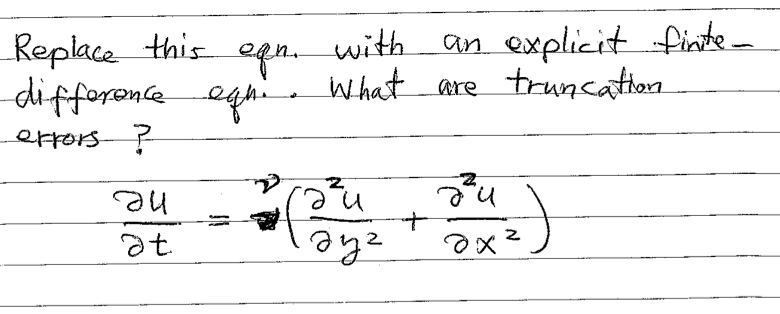 Replace this eqn. with an explicit finite-
difference eqn. . What are truncation
errors ?
∂u/∂t = ν(∂²u/∂y² + ∂²u/∂x²)